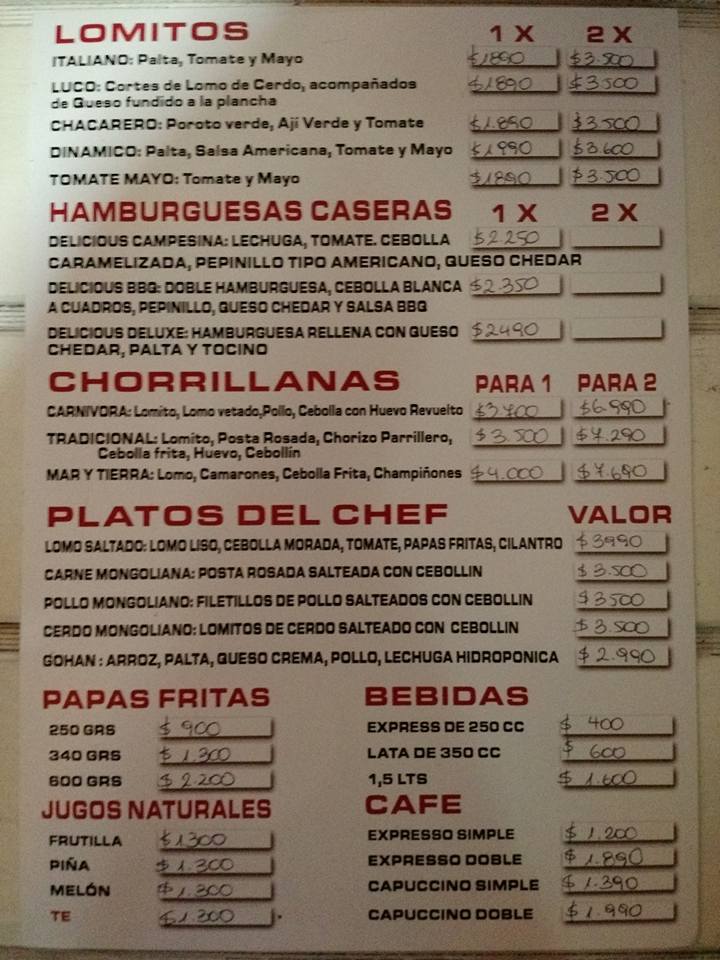 LOMITOS 1 X 2 X
ITALIANO: Palta, Tomate y Mayo $1890 $3.500
LUCO: Cortes de Lomo de Cerdo, acompañados $1890 $3500
de Queso fundido a la plancha
CHACARERO: Poroto verde, Ají Verde y Tomate $1.890 $3.500
DINAMICO: Palta, Salsa Americana, Tomate y Mayo $1990 $3.600
TOMATE MAYO: Tomate y Mayo $1890 $3.500
HAMBURGUESAS CASERAS 1 X 2 X
DELICIOUS CAMPESINA: LECHUGA, TOMATE. CEBOLLA $2.250
CARAMELIZADA, PEPINILLO TIPO AMERICANO, QUESO CHEDAR
DELICIOUS BBQ: DOBLE HAMBURGUESA, CEBOLLA BLANCA $2.350
A CUADROS, PEPINILLO, QUESO CHEDAR Y SALSA BBQ
DELICIOUS DELUXE: HAMBURGUESA RELLENA CON QUESO $2490
CHEDAR, PALTA Y TOCINO
CHORRILLANAS PARA 1 PARA 2
CARNIVORA: Lomito, Lomo vetado,Pollo, Cebolla con Huevo Revuelto $3700 $6.990
TRADICIONAL: Lomito, Posta Rosada, Chorizo Parrillero, $3.500 $7.290
Cebolla frita, Huevo, Cebollín
MAR Y TIERRA: Lomo, Camarones, Cebolla Frita, Champiñones $4.000 $7.690
PLATOS DEL CHEF VALOR
LOMO SALTADO: LOMO LISO, CEBOLLA MORADA, TOMATE, PAPAS FRITAS, CILANTRO $3990
CARNE MONGOLIANA: POSTA ROSADA SALTEADA CON CEBOLLIN $3.500
POLLO MONGOLIANO: FILETILLOS DE POLLO SALTEADOS CON CEBOLLIN $3500
CERDO MONGOLIANO: LOMITOS DE CERDO SALTEADO CON CEBOLLIN $3.500
GOHAN : ARROZ, PALTA, QUESO CREMA, POLLO, LECHUGA HIDROPONICA $2.990
PAPAS FRITAS
250 GRS $900
340 GRS $1.300
600 GRS $2.200
JUGOS NATURALES
FRUTILLA $1300
PIÑA $1.300
MELÓN $1.300
TE $1.300
BEBIDAS
EXPRESS DE 250 CC $400
LATA DE 350 CC $600
1,5 LTS $1.600
CAFE
EXPRESSO SIMPLE $1.200
EXPRESSO DOBLE $1.890
CAPUCCINO SIMPLE $1.390
CAPUCCINO DOBLE $1.990